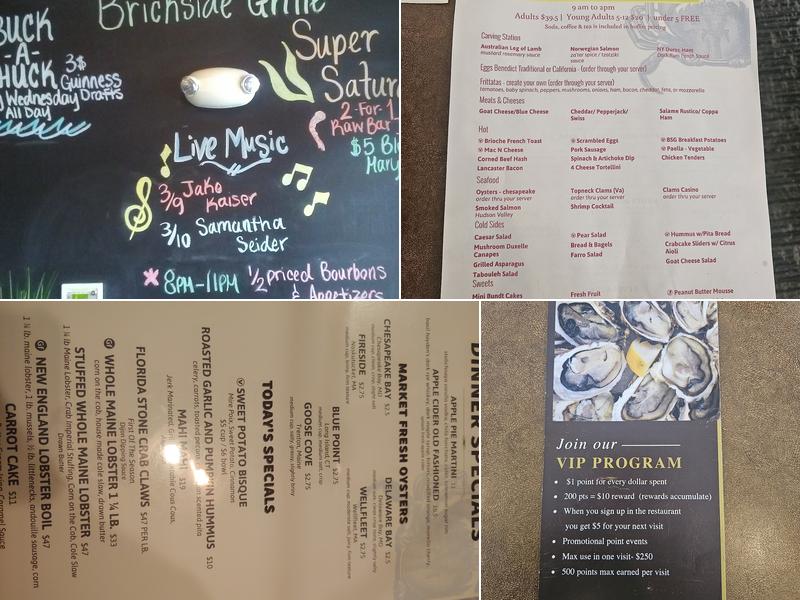 Brickside Grille
BUCK
-A-
HUCK
Wednesday
All Day
3$
Guinness
Drafts
Super
Satur
2-For-1
Raw Bar
$5 Bl
Mary
Live Music
3/9 Jako
Kaiser
3/10 Samantha
Seider
8PM-11PM 1/2 priced Bourbons
& Appetizers
9 am to 2pm
Adults $39.5 | Young Adults 5-12 $20 | under 5 FREE
Soda, coffee & tea is included in buffet pricing
Carving Station
Australian Leg of Lamb
mustard rosemary sauce
Norwegian Salmon
za'ter spice / tzatziki
sauce
NY Duroc Ham
Dark Rum Peach Sauce
Eggs Benedict Traditional or California - (order through your server)
Frittatas - create your own (order through your server)
tomatoes, baby spinach, peppers, mushrooms, onions, ham, bacon, cheddar, feta, or mozzarella
Meats & Cheeses
Goat Cheese/Blue Cheese
Cheddar/ Pepperjack/
Swiss
Salame Rustico/ Coppa
Ham
Hot
Brioche French Toast
Mac N Cheese
Corned Beef Hash
Lancaster Bacon
Scrambled Eggs
Pork Sausage
Spinach & Artichoke Dip
4 Cheese Tortellini
BSG Breakfast Potatoes
Paella - Vegetable
Chicken Tenders
Seafood
Oysters - chesapeake
order thru your server
Smoked Salmon
Hudson Valley
Topneck Clams (Va)
order thru your server
Shrimp Cocktail
Clams Casino
order thru your server
Cold Sides
Caesar Salad
Mushroom Duxelle
Canapes
Grilled Asparagus
Tabouleh Salad
Pear Salad
Bread & Bagels
Farro Salad
Hummus w/Pita Bread
Crabcake Sliders w/ Citrus
Aioli
Goat Cheese Salad
Sweets
Mini Bundt Cakes
Fresh Fruit
Peanut Butter Mousse
DINNER SPECIALS
APPLE PIE MARTINI
APPLE CIDER OLD FASHIONED
MARKET FRESH OYSTERS
CHESAPEAKE BAY $2.5
Chesapeake Bay, MD
FIRESIDE $2.75
BLUE POINT $2.75
Long Island, CT
GOOSE COVE $2.75
Trenton, Maine
DELAWARE BAY $2.5
Delaware Bay, MD
WELLFLEET $2.75
Wellfleet, MA
TODAY'S SPECIALS
SWEET POTATO BISQUE
Mire Poix, Sweet Potato, Cinnamon
$5 cup / $6 bowl
ROASTED GARLIC AND PUMPKIN HUMMUS $10
MAHI MAHI $19
FLORIDA STONE CRAB CLAWS $47 PER LB.
First Of The Season
Dijon Dipping Sauce
WHOLE MAINE LOBSTER 1 ¼ LB. $33
corn on the cob, house made cole slaw, drawn butter
STUFFED WHOLE MAINE LOBSTER $47
1 ¼ lb Maine Lobster, Crab Imperial Stuffing, Corn on the Cob, Cole Slaw
Drawn Butter
NEW ENGLAND LOBSTER BOIL $47
1 ¼ lb. maine lobster, 1 lb. mussels, ½ lb. littlenecks, andouille sausage, corn
CARROT CAKE $11
Join our
VIP PROGRAM
$1 point for every dollar spent
200 pts = $10 reward (rewards accumulate)
When you sign up in the restaurant
you get $5 for your next visit
Promotional point events
Max use in one visit- $250
500 points max earned per visit